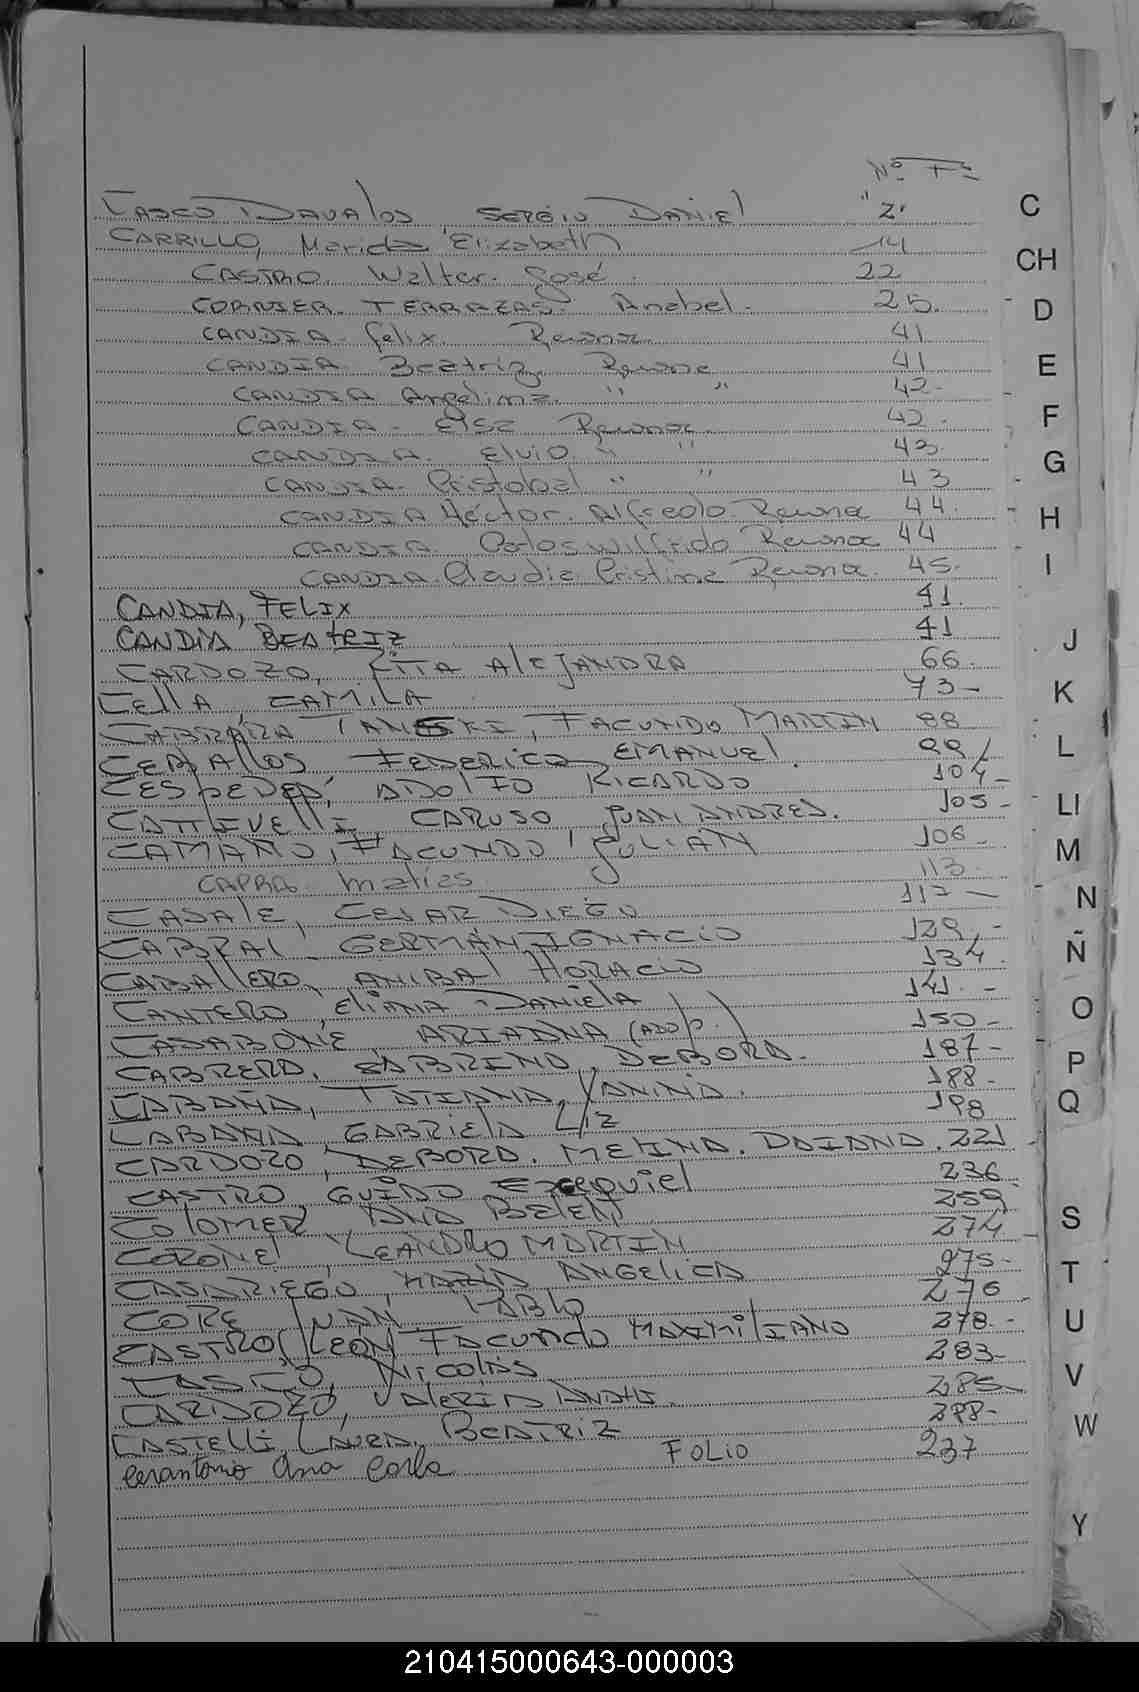 Nº Fº
CASCO DAVALOS SERGIO DANIEL "2"
CARRILLO, Maricla Elizabeth 14
CASTRO. Walter. José. 22
CORNIER. TERRAZAS. Anabel. 25.
CANDIA. Felix. 41
CANDIA. Beatriz 41
CANDIA Angelina. " " 42-
CANDIA. Elsa 42-
CANDIA. Elvio. " " 43.
CANDIA. Cristobal " " 43
CANDIA Héctor. Alfredo. 44.
CANDIA. Carlos Wilfrido 44
CANDIA. Claudia Cristina 45.
CANDIA, FELIX 41.
CANDIA BEAtRIZ 41
CARDOZO, RITA ALEJANDRA 66.
CELLA CAMILA 73-
CABRERA, FACUNDO MARTIN 88
CEBALLOS FEDERICO EMANUEL. 99/
CESPEDES, ADOLFO RICARDO 104-
CATTIVELLI CARUSO JUAN ANDRES. 105-
CAMAÑO, FACUNDO JULIAN 106-
CAPRA. Matias 113.
CASALE, CESAR DIEGO 117-
CABRAL GERMAN IGNACIO 129,-
CABALLERO, ANIBAL HORACIO 134.
CANTERO, ELIANA DANIELA 141. -
CASABONE ARIADNA (ADOP.) 150-
CABRERA, SABRINA, DEBORA. 187-
CABAÑA, TATIANA, YANINA. 188-
CABAÑA GABRIELA LIZ 198
CARDOZO, DEBORA. MELINA. DAIANA. 221
CASTRO GUIDO EZEQUIEL 236
COLOMER ANA BELEN 259
CORONEL, LEANDRO MARTIN 274
CASARIEGO, MARIA ANGELICA 275-
CORE JUAN PABLO 276
CASTRO, LEON FACUNDO MAXIMILIANO 278.-
CASCO, NICOLAS 283-
CARDOZO, VALERIA ANAHI. 285
CASTELLI, LAURA, BEATRIZ 298-
Cerantonio Ana Carla FOLIO 237
C
CH
D
E
F
G
H
I
J
K
L
Ll
M
N
Ñ
O
P
Q
S
T
U
V
W
Y
210415000643-000003